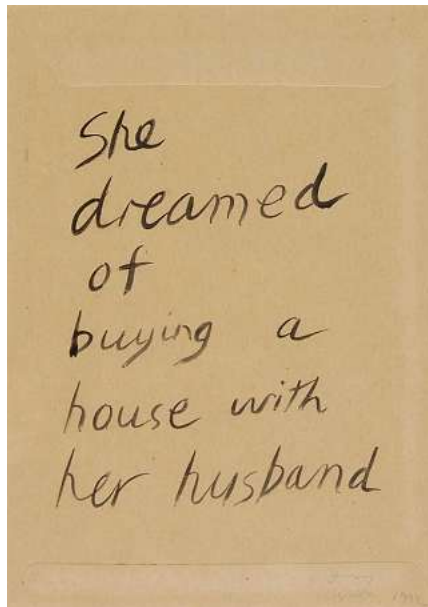 She
dreamed
of
buying a
house with
her husband